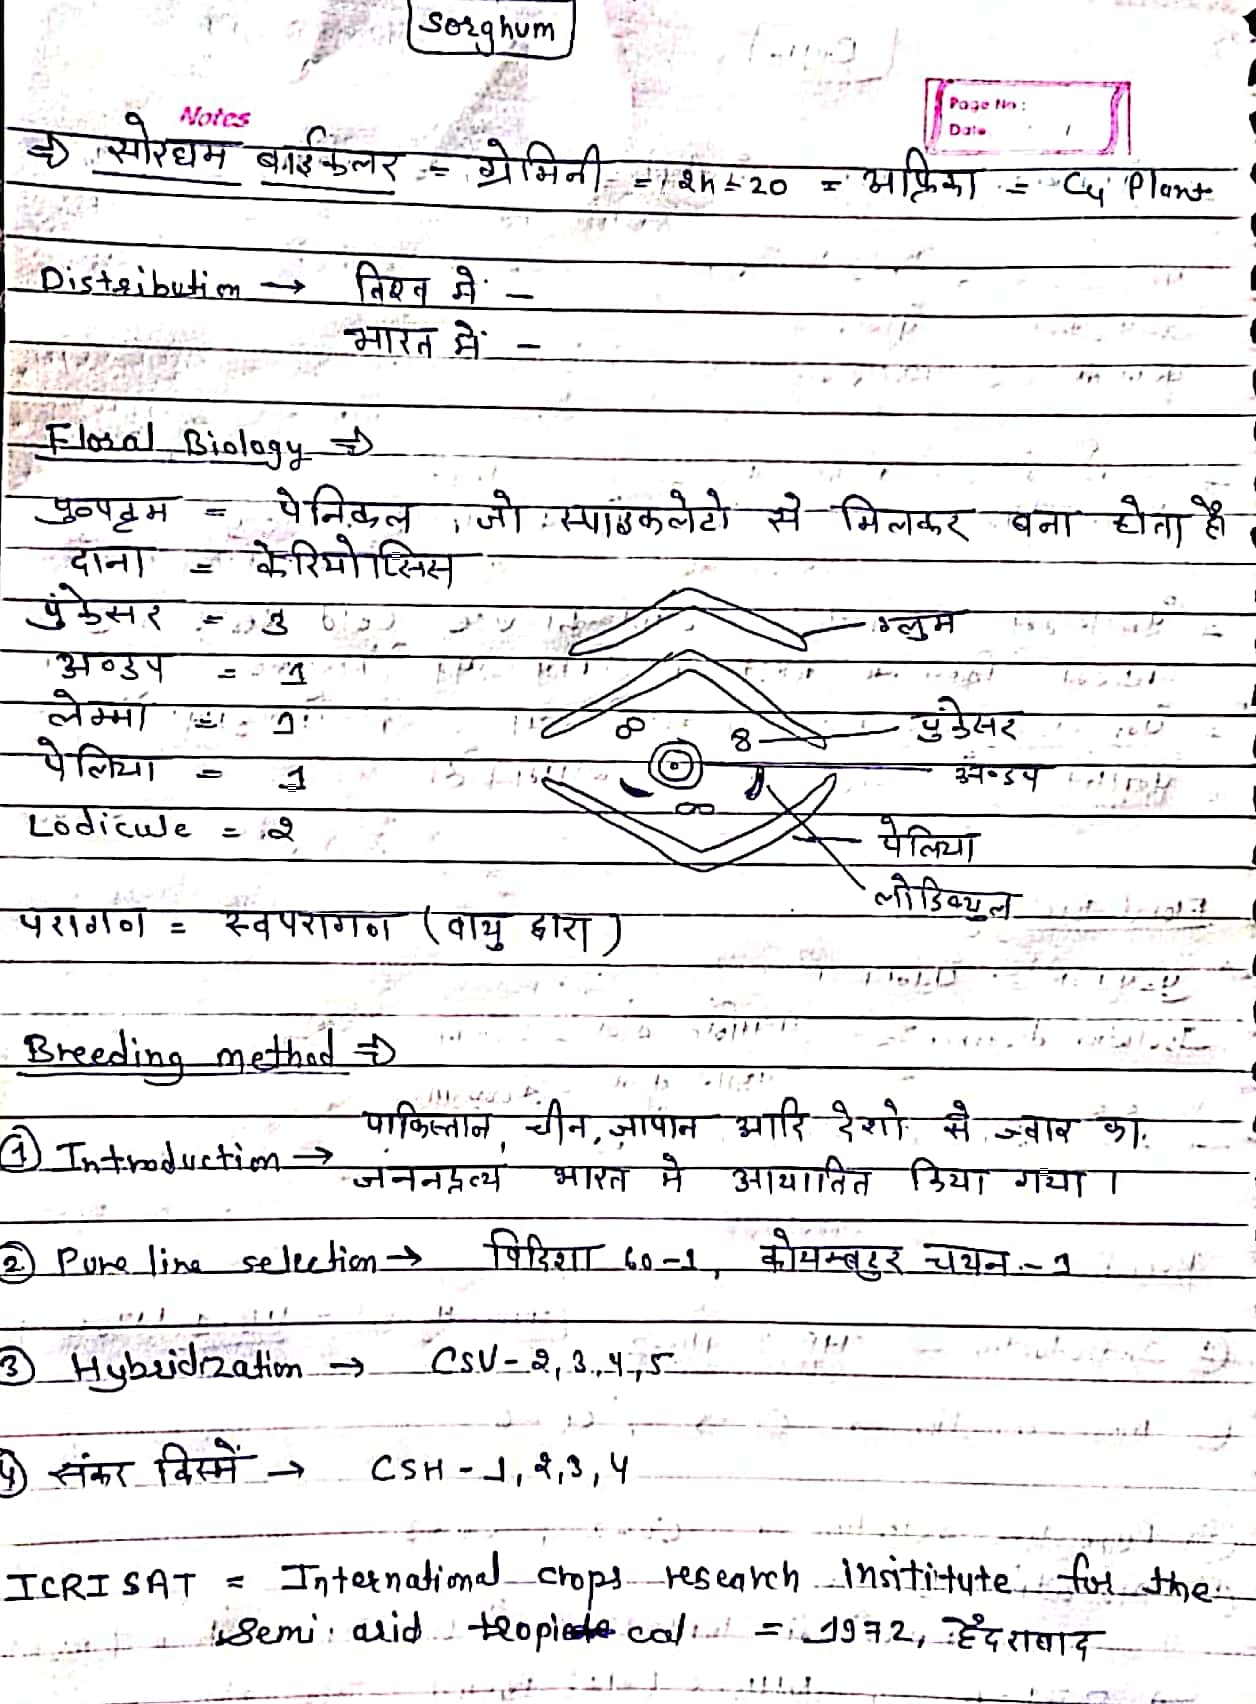 Sorghum
Notes
Page No :
Date
⇒ सोरघम बाईकलर = ग्रेमिनी = 2n = 20 = अफ्रिका = C4 Plant
Distribution → विश्व में -
भारत में -
Floral Biology ⇒
पुष्पक्रम = पेनिकल, जो स्पाइकलेटो से मिलकर बना होता है
दाना = केरियोप्सिस
पुंकेसर = 3
ग्लुम
अण्डप = 1
लेम्मा = 1
पुंकेसर
पेलिया = 1
अण्डप
Lodicule = 2
पेलिया
लोडिक्युल
परागण = स्वपरागण (वायु द्वारा)
Breeding method ⇒
① Introduction → पाकिस्तान, चीन, जापान आदि देशो से ज्वार का
जननद्रव्य भारत मे आयातित किया गया।
② Pure line selection → विदिशा 60-1, कोयम्बटुर चयन - 1
③ Hybridization → CSV - 2, 3, 4, 5
④ संकर किस्में → CSH - 1, 2, 3, 4
ICRISAT = International crops research institute for the
Semi arid tropical = 1972, हैदराबाद